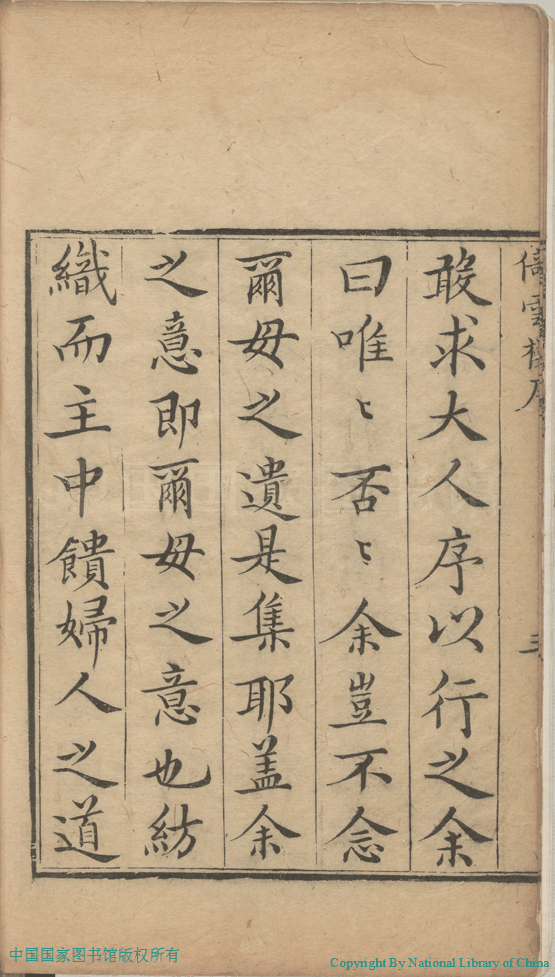 敢求大人序以行之余
曰唯〻否〻余豈不念
爾母之遺是集耶盖余
之意即爾母之意也紡
織而主中饋婦人之道
三
中国国家图书馆版权所有
Copyright By National Library of China